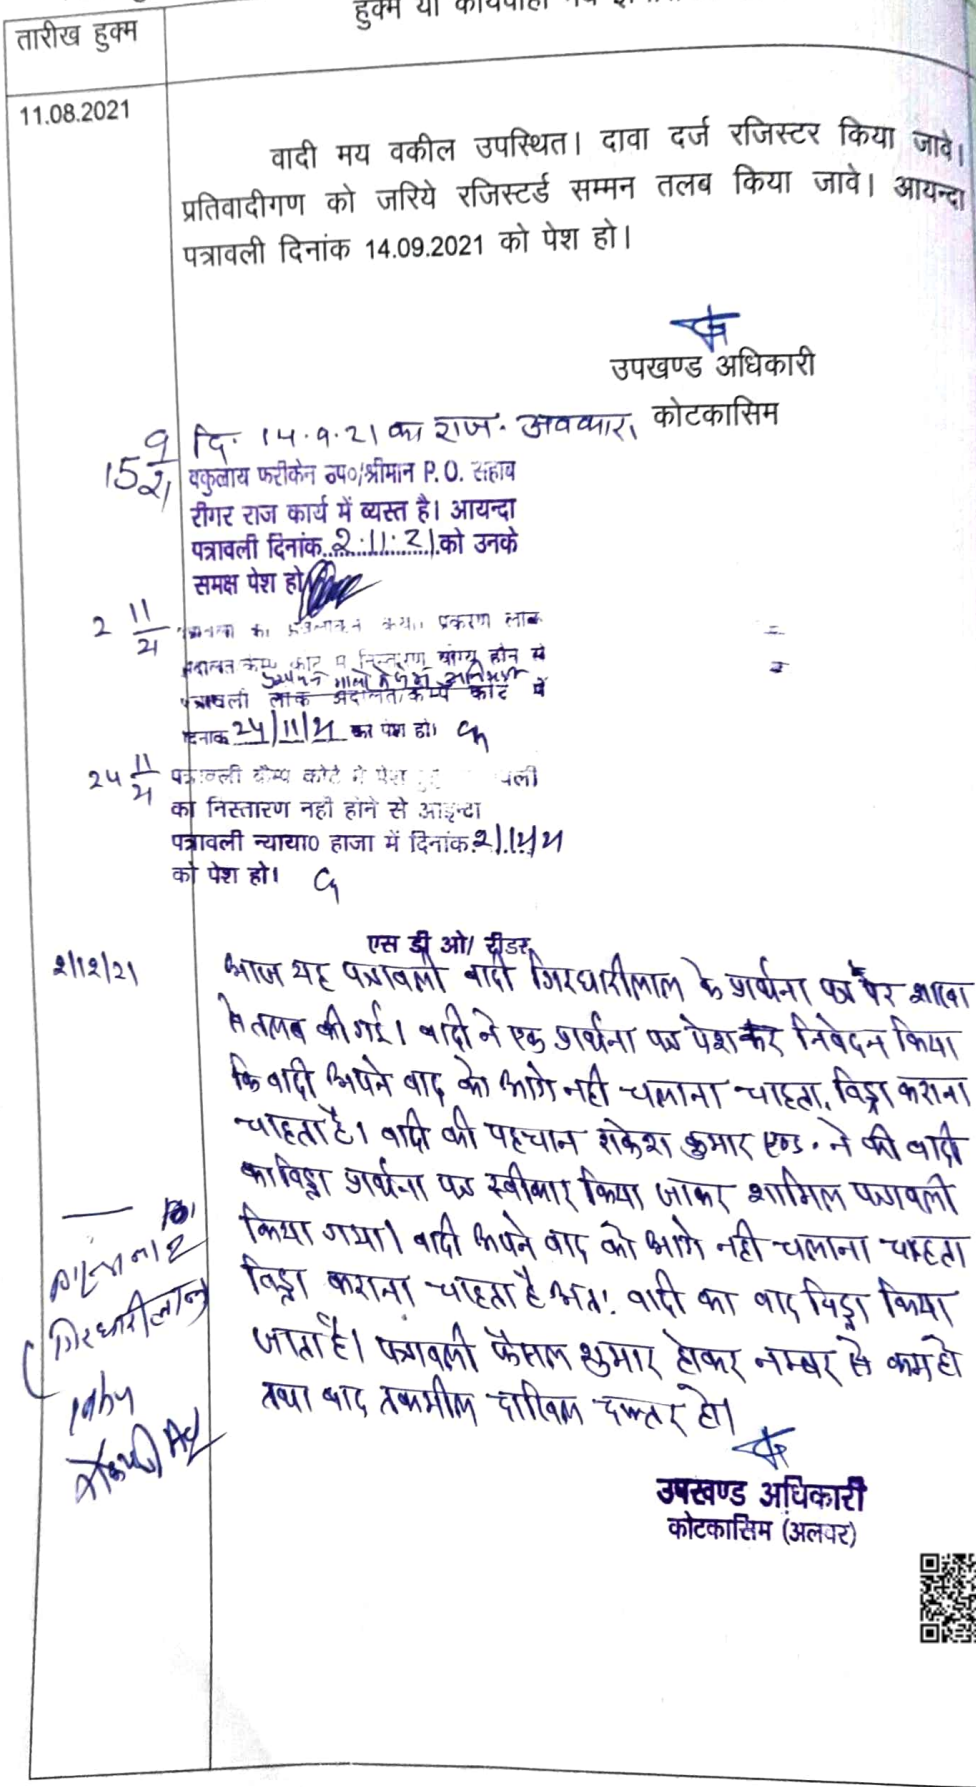 तारीख हुक्म
हुक्म या कार्यवाही मय
11.08.2021
वादी मय वकील उपस्थित। दावा दर्ज रजिस्टर किया जावे।
प्रतिवादीगण को जरिये रजिस्टर्ड सम्मन तलब किया जावे। आयन्दा
पत्रावली दिनांक 14.09.2021 को पेश हो।
उपखण्ड अधिकारी
कोटकासिम
15 9/21
दि. 14.9.21 का राज. अवकाश,
वकुलाय फरीकेन उप०/श्रीमान P.O. साहब
दीगर राज कार्य में व्यस्त है। आयन्दा
पत्रावली दिनांक 2.11.21 को उनके
समक्ष पेश हो
2 11/21
प्रकरण लोक
अदालत कैम्प कोर्ट में निस्तारण योग्य होने से
पत्रावली लोक अदालत/कैम्प कोर्ट में
दिनांक 24/11/21 को पेश हो।
24 11/21
पत्रावली कैम्प कोर्ट में पेश
का निस्तारण नही होने से आइन्दा
पत्रावली न्याया0 हाजा में दिनांक 2/12/21
को पेश हो।
एस डी ओ/ रीडर
2/12/21
आज यह पत्रावली वादी गिरधारीलाल के प्रार्थना पत्र पर शाखा
से तलब की गई। वादी ने एक प्रार्थना पत्र पेश कर निवेदन किया
कि वादी अपने वाद को आगे नही चलाना चाहता, विड्रा कराना
चाहता है। वादी की पहचान राकेश कुमार एड. ने की वादी
का विड्रा प्रार्थना पत्र स्वीकार किया जाकर शामिल पत्रावली
किया गया। वादी अपने वाद को आगे नही चलाना चाहता
विड्रा कराना चाहता है अतः वादी का वाद विड्रा किया
जाता है। पत्रावली फैसल शुमार होकर नम्बर से कम हो
तथा बाद तकमील दाखिल दफ्तर हो।
गिरधारीलाल
उपखण्ड अधिकारी
कोटकासिम (अलवर)